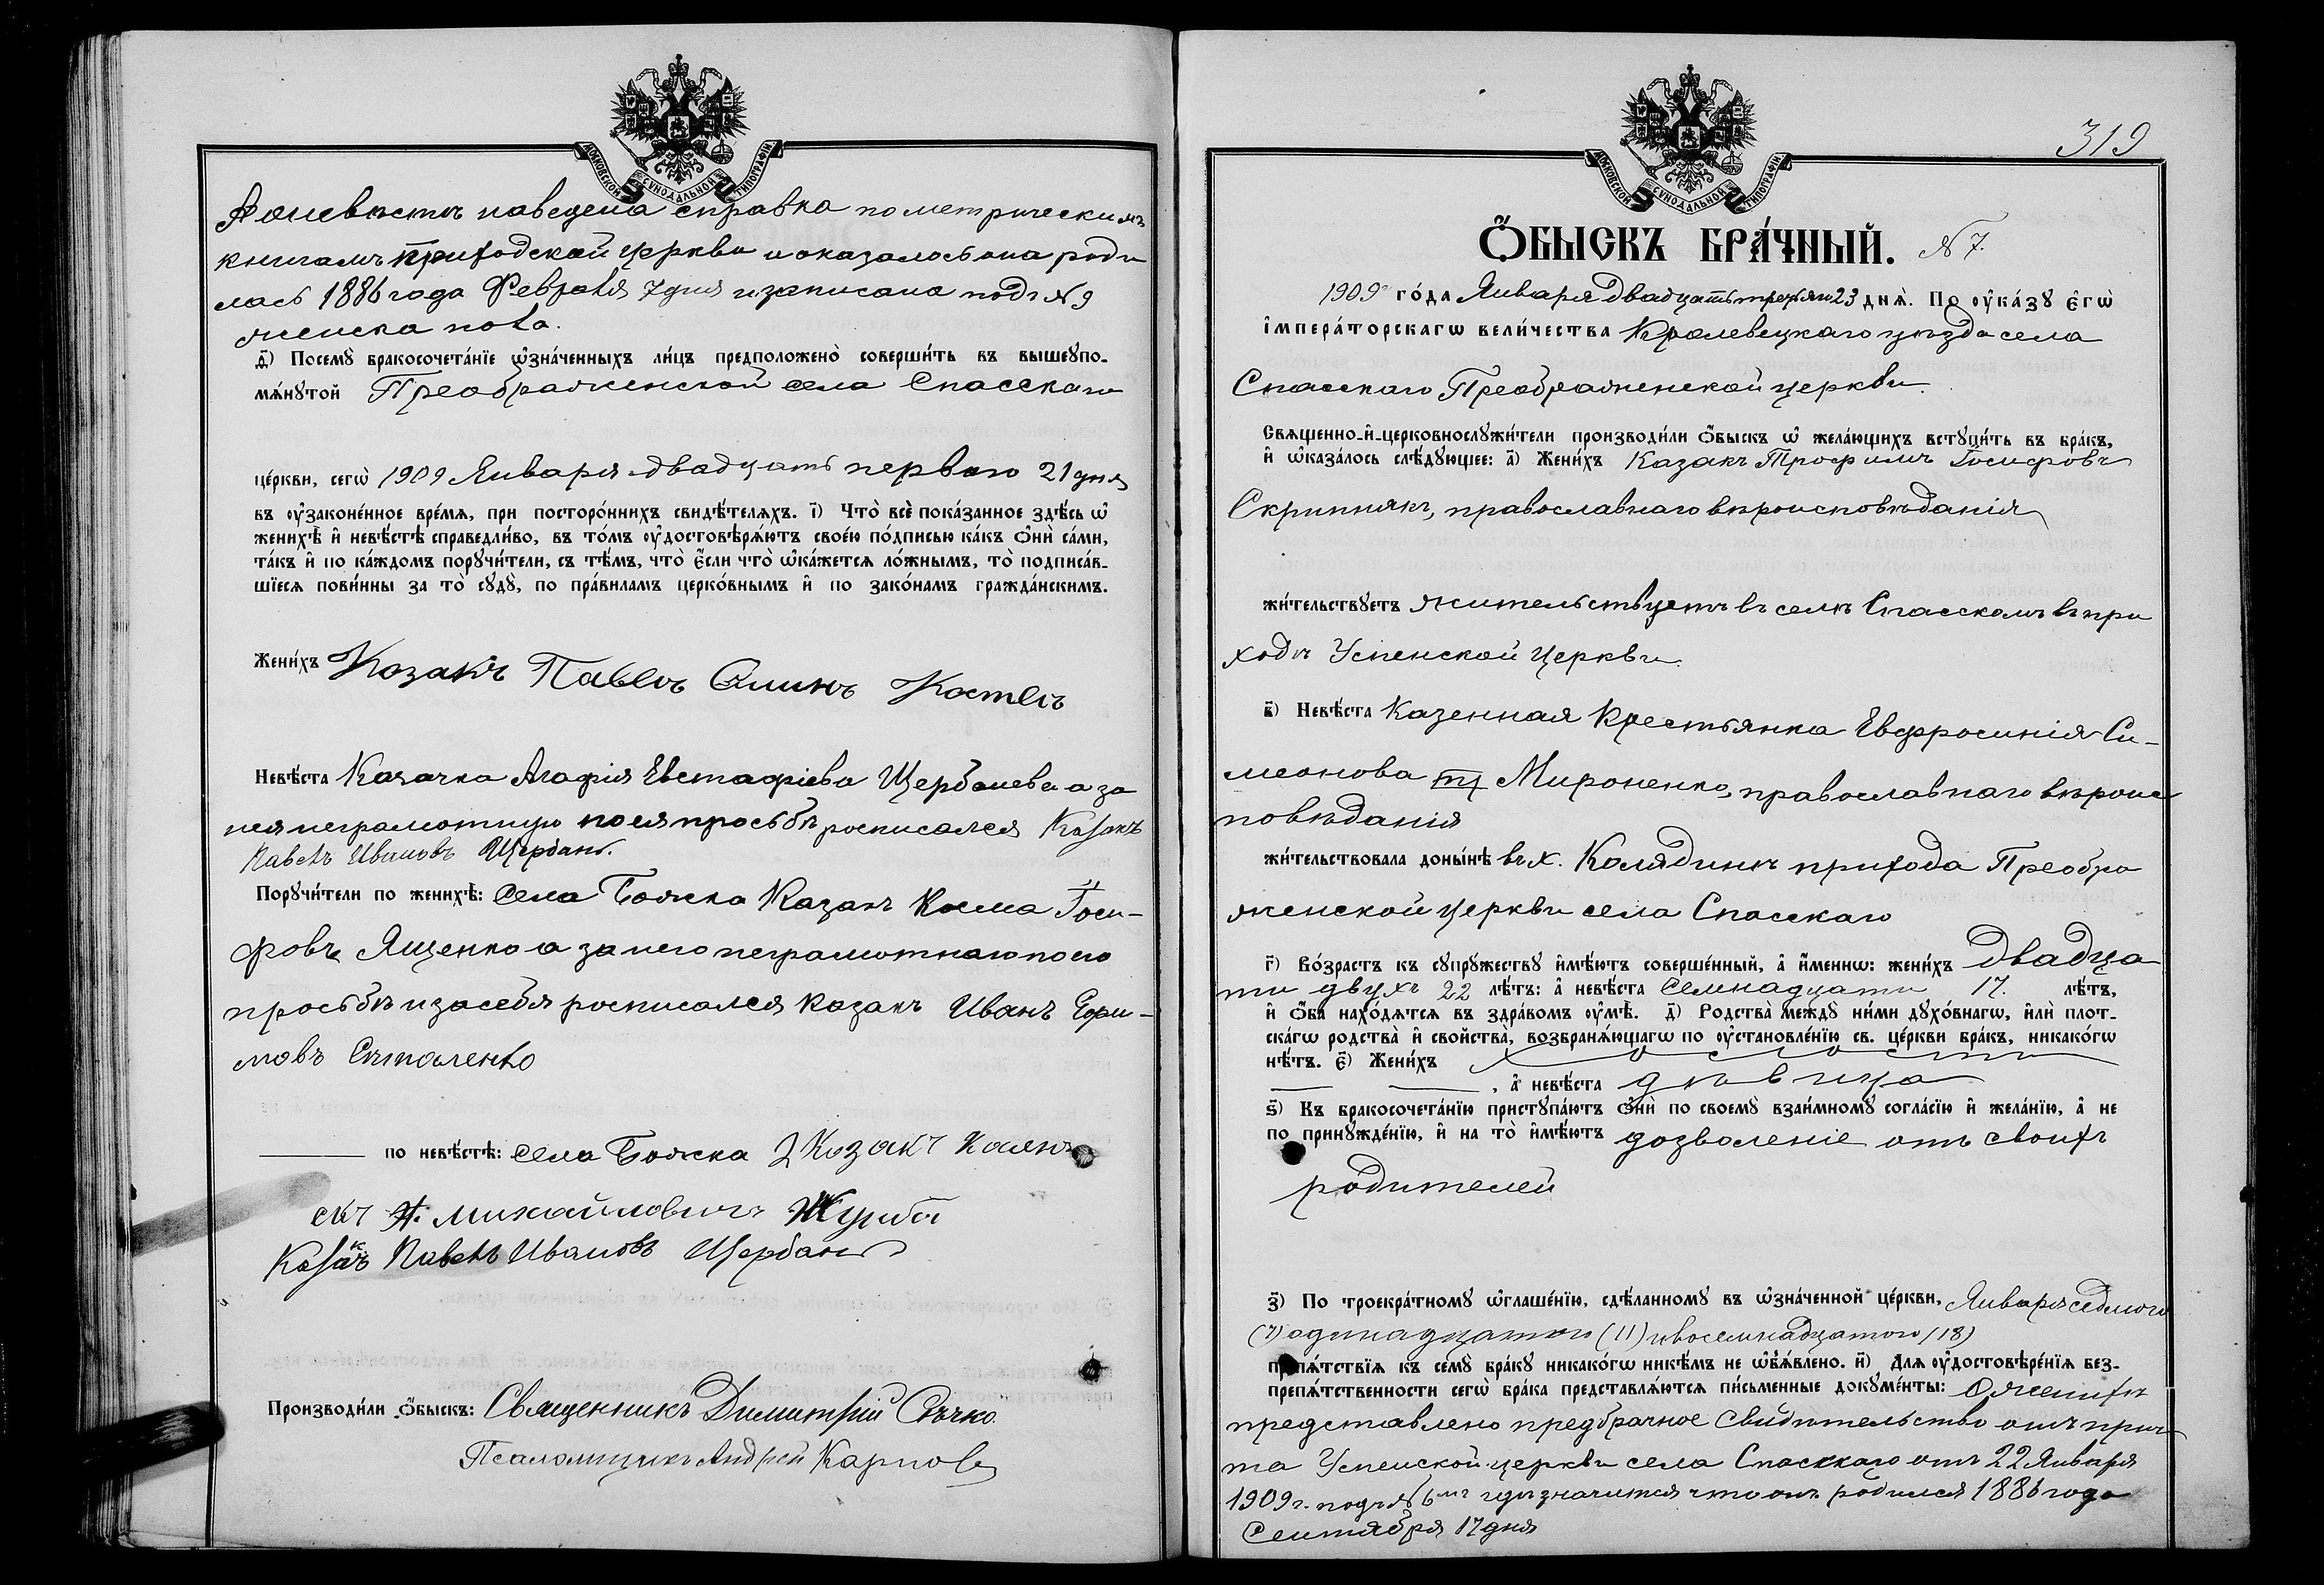 МОСКОВСКОЙ СУНОДАЛЬНОЙ ТИПОГРАФІИ
А о невѣстѣ наведена справка по метрическимъ
книгамъ приходской церкви и оказалось она роди
лась 1886 года Февраля 7 дня и записана подъ № 9
женска пола.
д҃і) Посемꙋ̀ бракосочета́нїе ѡ҆зна́ченныхъ ли́цъ предположено̀ соверши́ть въ вышеꙋпо-
мѧ́нꙋтой Преображенской села Спасскаго
це́ркви, сегѡ̀ 1909 Января двадцать первого 21 дня
въ ᲂу҆законе́нное вре́мѧ, при посторо́ннихъ свидѣ́телѧхъ. і҃) Что̀ всѐ пока́занное здѣ́сь ѡ҆
женихѣ̀ и҆ невѣ́стѣ справедли́во, въ то́мъ ᲂу҆достовѣрѧ́ютъ свое́ю по́дписью ка́къ ѻ҆нѝ са́ми,
та́къ и҆ по ка́ждомъ порꙋчи́тели, съ тѣ́мъ, что̀ є҆́сли что̀ ѡ҆ка́жетсѧ ло́жнымъ, то̀ подписа́в-
шїесѧ пови́нны за то̀ сꙋдꙋ̀, по пра́виламъ церко́внымъ и҆ по зако́намъ гражда́нскимъ.
Жени́хъ Козакъ Павелъ Костел
Невѣ́ста Казачка Агафія Евстафіева Щербанева а за
нея неграмотную по ея просьбѣ росписался Казакъ
Павелъ Ивановъ Щербакъ.
Порꙋчи́тели по женихѣ̀: Села Божка Казакъ Косма Іоси-
фовъ Ященко а за него неграмотнаго по его
просьбѣ и за себя росписался казакъ Иванъ Ефи-
мовъ
по невѣ́стѣ: села Божка 2 Козакъ
Михайловичъ Журба
Казакъ Павелъ Ивановъ Щербакъ
Производи́ли ѻ҆́быскъ: Священникъ Димитрій Сѣчко
Псаломщикъ Андрей Карпов
319
МОСКОВСКОЙ СУНОДАЛЬНОЙ ТИПОГРАФІИ
Ѻ҆́БЫСКЪ БРА́ЧНЫЙ. № 7.
1909 го́да Января двадцать третьяго 23 днѧ̀. По ᲂу҆ка́зꙋ є҆гѡ̀
і҆мпера́торскагѡ вели́чества Кролевецкаго уѣзда села
Спасскаго Преображенской церкви.
Свѧщенно-и҆-церковнослꙋжи́тели производи́ли ѻ҆́быскъ ѡ҆ жела́ющихъ встꙋпи́ть въ бра́къ,
и҆ ѡ҆каза́лось слѣ́дꙋющее: а҃) Жени́хъ Казакъ Трофимъ Іосифовъ
Скрипнякъ, православнаго вѣроисповѣданія
жи́тельствꙋетъ жительствуетъ въ селѣ Спасскомъ въ при
ходѣ Успенской Церкви.
в҃) Невѣ́ста Казенная Крестьянка Евфросинія Си-
меонова Мироненко, православнаго вѣроис
повѣданія
жи́тельствовала доны́нѣ въ х. Калядинѣ прихода Преобра
женской церкви села Спасскаго
г҃) Во́зрастъ къ сꙋпрꙋ́жествꙋ и҆мѣ́ютъ соверше́нный, а҆ и҆́меннѡ: жени́хъ двадца
ти двухъ 22 лѣ́тъ: а҆ невѣ́ста семнадцати 17. лѣ́тъ,
и҆ ѻ҆́ба нахо́дѧтсѧ въ здра́вомъ ᲂу҆мѣ̀. д҃) Родства̀ междꙋ̀ ни́ми дꙋхо́внагѡ, и҆лѝ плот-
ска́гѡ родства̀ и҆ свойства̀, возбранѧ́ющагѡ по ᲂу҆становле́нїю св. це́ркви бра́къ, никако́гѡ
нѣ́тъ. є҃) Жени́хъ холостъ
, а҆ невѣ́ста дѣвица
ѕ҃) Къ бракосочета́нїю пристꙋпа́ютъ ѻ҆нѝ по своемꙋ̀ взаи́мномꙋ согла́сїю и҆ жела́нїю, а҆ не
по принꙋжде́нїю, и҆ на то̀ и҆мѣ́ютъ дозволеніе отъ своихъ
родителей
з҃) По троекра́тномꙋ ѡ҆глаше́нїю, сдѣ́ланномꙋ въ ѡ҆зна́ченной це́ркви, Января седмого
(7) одинадцатого (11) и восемнадцатого (18)
препѧ́тствїѧ къ семꙋ̀ бра́кꙋ никако́гѡ никѣ́мъ не ѡ҆б̾ѧ́влено. и҃) Длѧ ᲂу҆достовѣре́нїѧ без-
препѧ́тственности сегѡ̀ бра́ка представлѧ́ютсѧ пи́сьменные докꙋме́нты: О женихѣ
представлено предбрачное свидѣтельство отъ прич
та Успенской церкви села Спасскаго отъ 22 Января
1909 г. подъ № 6мъ гдѣ значится что онъ родился 1886 года
Сентября 17 дня